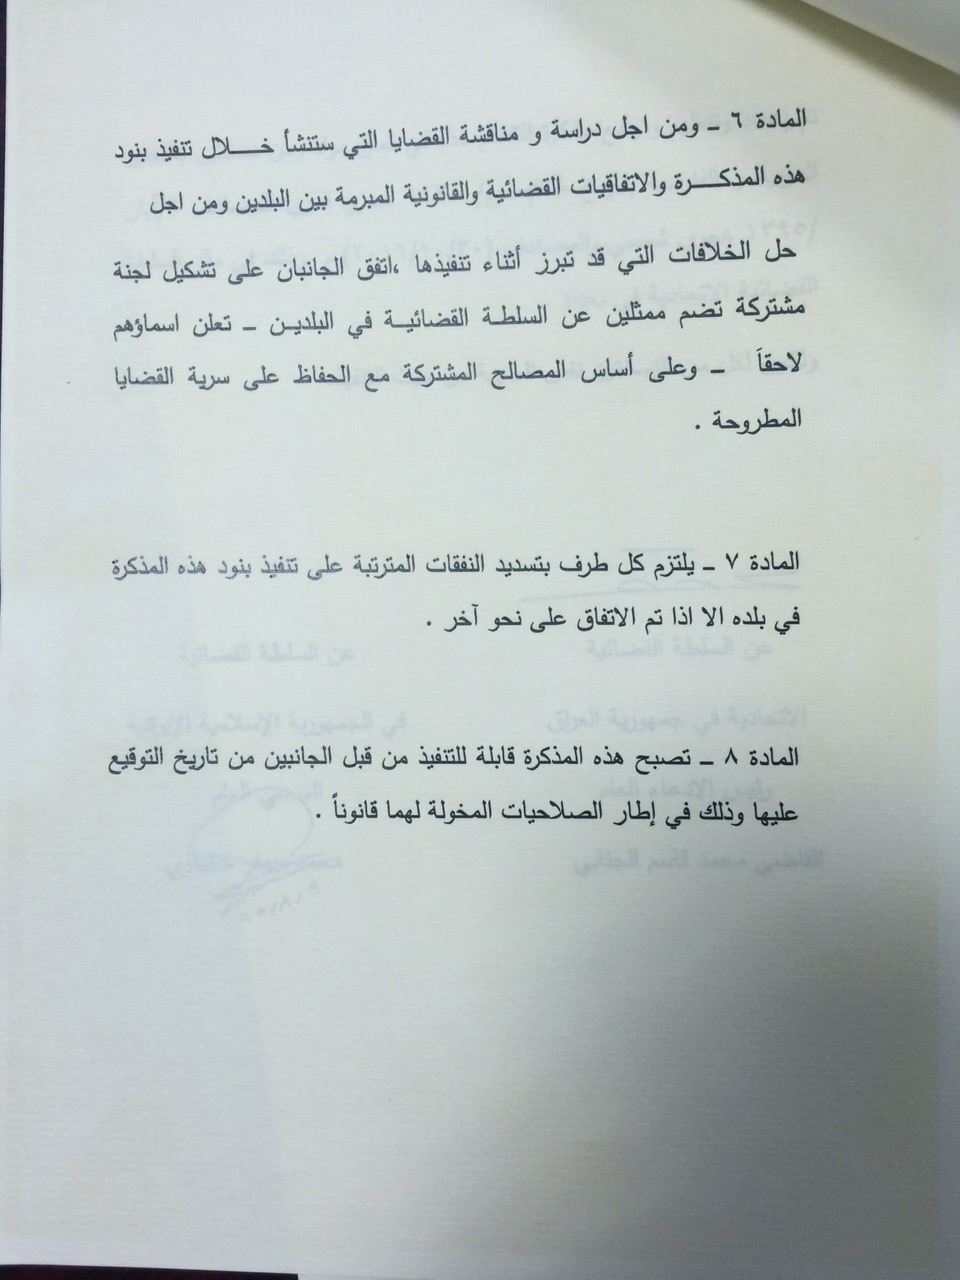 المادة ٦ ـ ومن اجل دراسة و مناقشة القضايا التي ستنشأ خـــلال تنفيذ بنود
هذه المذكـــرة والاتفاقيات القضائية والقانونية المبرمة بين البلدين ومن اجل
حل الخلافات التي قد تبرز أثناء تنفيذها ،اتفق الجانبان على تشكيل لجنة
مشتركة تضم ممثلين عن السلطـة القضائيـة في البلديـن ـ تعلن اسماؤهم
لاحقاً ـ وعلى أساس المصالح المشتركة مع الحفاظ على سرية القضايا
المطروحة .
المادة ٧ ـ يلتزم كل طرف بتسديد النفقات المترتبة على تنفيذ بنود هذه المذكرة
في بلده الا اذا تم الاتفاق على نحو آخر .
عن السلطة القضائية
عن السلطة القضائية
الاتحادية في جمهورية العراق
في الجمهورية الإسلامية الإيرانية
المادة ٨ ـ تصبح هذه المذكرة قابلة للتنفيذ من قبل الجانبين من تاريخ التوقيع
رئيس الادعاء العام
عليها وذلك في إطار الصلاحيات المخولة لهما قانوناً .
القاضي محمد قاسم الجنابي